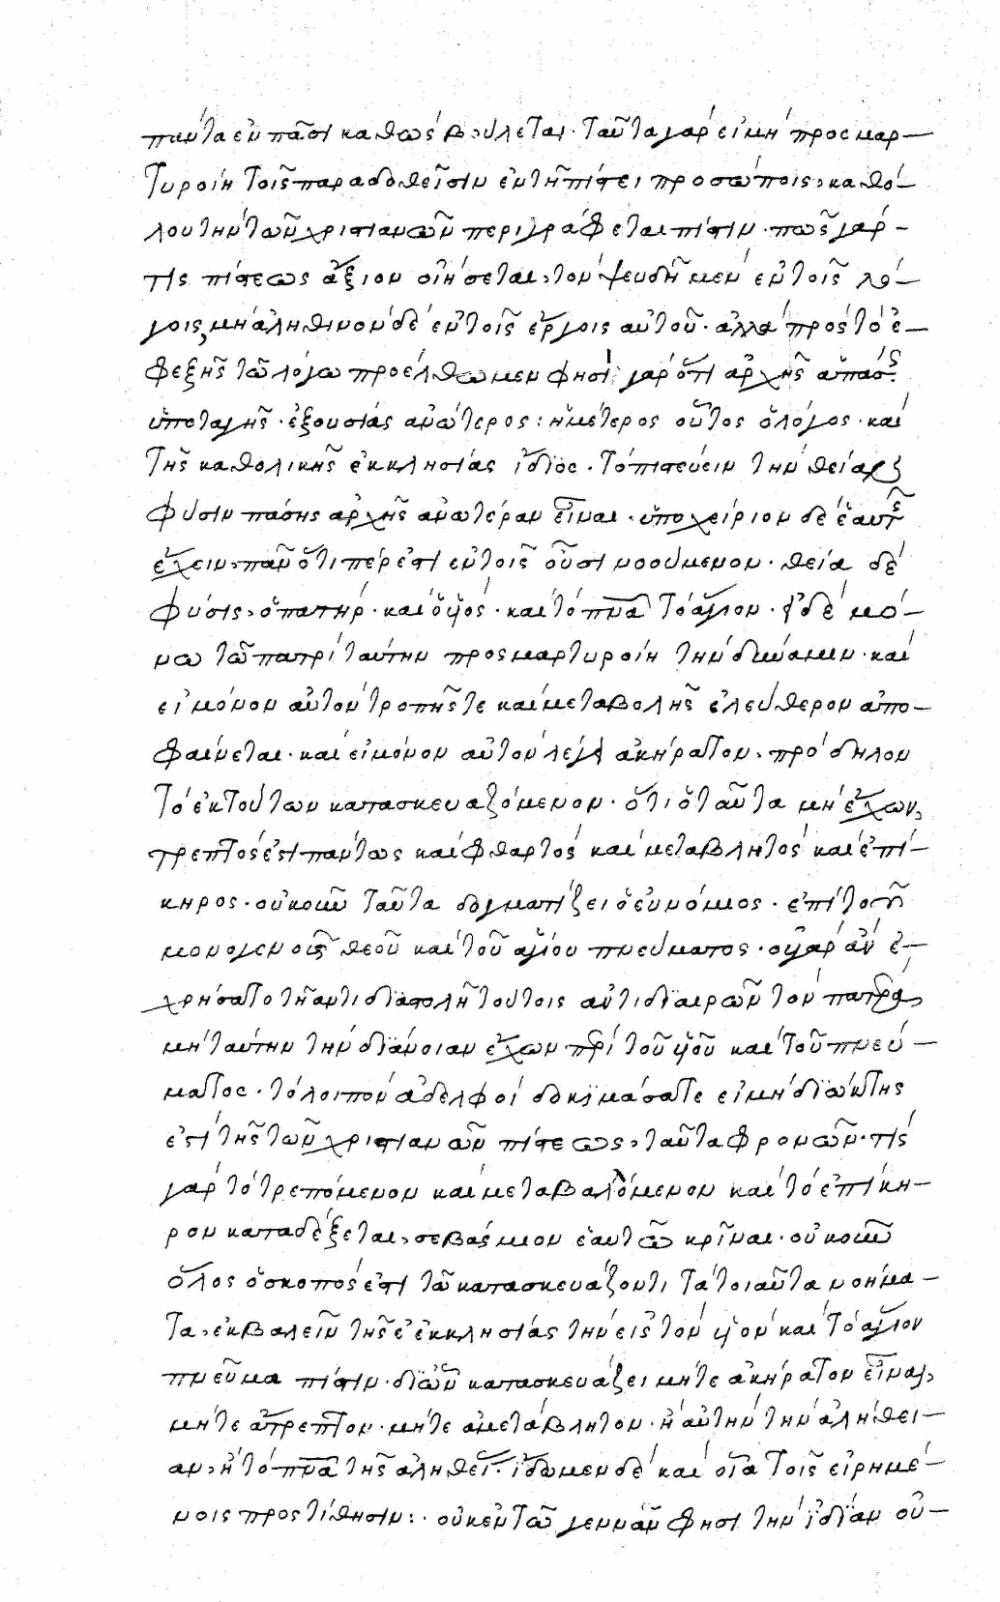 πάντα ἐν πᾶσι καθὼς βούλεται· ταῦτα γὰρ εἰ μὴ προσμαρ–
τυροίη τοῖς παραδοθεῖσιν ἐν τῇ πίστει προσώποις, καθό–
λου τὴν τῶν χριστιανῶν περιγράφεται πίστιν· πῶς γάρ –
τις πίστεως ἄξιον οἰήσεται, τὸν ψευδῆ μὲν ἐν τοῖς λό–
γοις, μὴ ἀληθινὸν δὲ ἐν τοῖς ἔργοις αὐτοῦ· ἀλλὰ πρὸς τὸ ἐ–
φεξῆς τῶ λόγω προέλθωμεν φησὶ γὰρ ὅτι ἀρχῆς ἁπάσης
ὑποταγῆς· ἐξουσίας ἀνώτερος: ἡμέτερος οὗτος ὁ λόγος· καὶ
τῆς καθολικῆς ἐκκλησίας ἴδϊος· τὸ πιστεύειν τὴν θείαν
φύσιν πάσης ἀρχῆς ἀνωτέραν εἶναι· ὑποχείριον δὲ ἑαυτῆς
ἔχειν, πᾶν ὅτι πέρ ἐστι ἐν τοῖς οὖσι νοούμενον· θεία δὲ
φύσις, ὁ πατήρ· καὶ ὁ ὑιός· καὶ τὸ πνα τὸ ἅγιον· εἰ δὲ μό–
νω τῶ πατρὶ ταύτην προσμαρτυροίη τὴν δύναμιν· καὶ
εἰ μόνον αὐτὸν τροπῆς τε καὶ μεταβολῆς ἐλεύθερον ἀπο–
φαίνεται· καὶ εἰ μόνον αὐτὸν λέγει ἀκήρατον, πρόδηλον
τὸ ἐκ τούτων κατασκευαζόμενον· ὅτι ὁ ταῦτα μὴ ἔχων,
τρεπτός ἐστι πάντως καὶ φθαρτὸς καὶ μεταβλητὸς καὶ ἐπί–
κηρος· οὐκοῦν ταῦτα δογματίζει ὁ εὐνόμιος· ἐπὶ τοῦ
μονογενοῦς θεοῦ καὶ τοῦ ἁγίου πνεύματος· οὐ γὰρ ἂν ἐ–
χρήσατο τῇ ἀντιδϊαστολῇ τούτοις ἀντιδϊαιρῶν τὸν πατέρα,
μὴ ταύτην τὴν διάνοιαν ἔχων πρὶ τοῦ ὑιοῦ καὶ τοῦ πνεύ –
ματος· τὸ λοιπὸν ἀδελφοὶ δοκιμάσατε εἰ μὴ δϊώκτης
ἐστὶ τῆς τῶν χριστιανῶν πίστεως, ταῦτα φρονῶν· τίς
γὰρ τὸ τρεπόμενον καὶ μεταβαλλόμενον καὶ τὸ ἐπίκη–
ρον καταδέξεται, σεβάσμιον ἑαυτῶ κρῖναι· οὐκοῦν
ὅλος ὁ σκοπός ἐστι τῶ κατασκευάζοντι τὰ τοιαῦτα νοήμα –
τα, ἐκβαλεῖν τῆς ἐ ἐκκλησίας τὴν εἰς τὸν ὑιὸν καὶ τὸ ἅγιον
πνεῦμα πίστιν· δϊ ὧν κατασκευάζει μήτε ἀκήρατον εἶναι,
μήτε ἄτρεπτον· μήτε ἀμετάβλητον· ἢ αὐτὴν τὴν ἀλήθει–
αν, ἢ τὸ πνα τῆς ἀληθεί· ἴδωμεν δὲ καὶ οἷα τοῖς εἰρημέ–
νοις προστίθησιν:· οὐκ ἐν τῶ γεννᾶν φησὶ τὴν ἰδίαν οὐ–